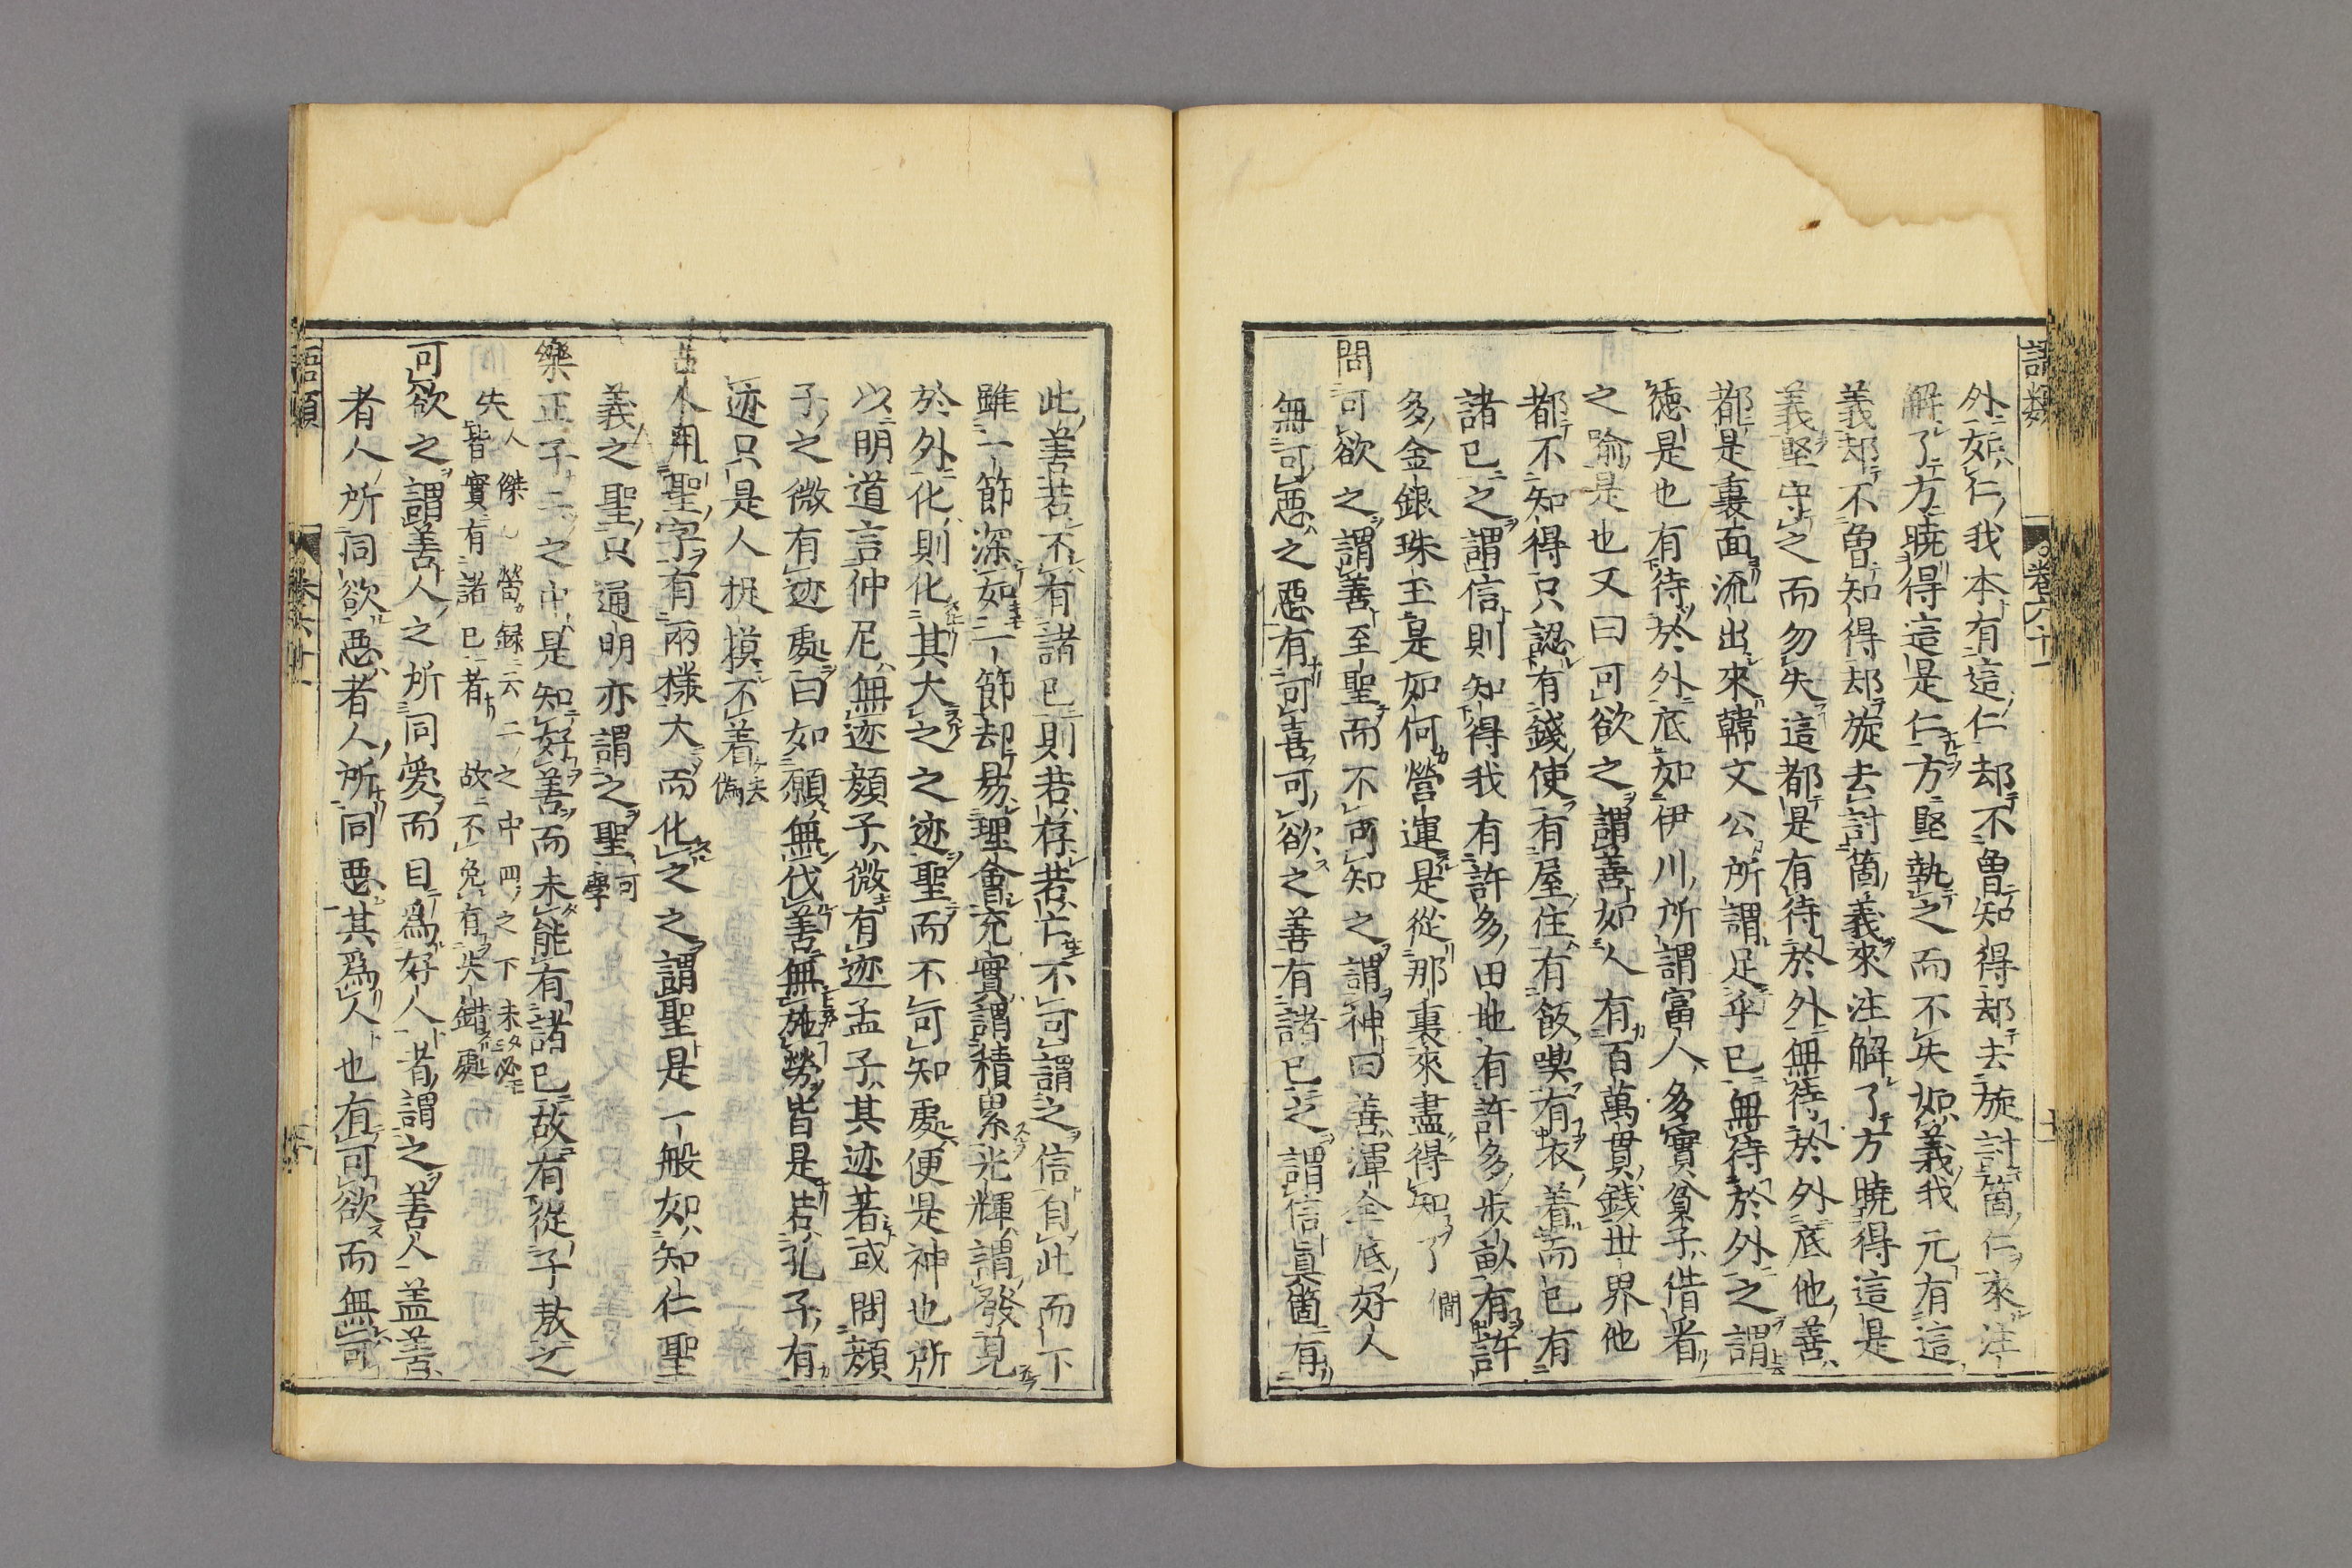 語類
卷六十一
外如仁我本有這仁却不曾知得却去旋討箇仁來注
解了方曉得這是仁方堅執之而不失如義我元有這
義却不曾知得却旋去討箇義來注解了方曉得這是
義堅守之而勿失這都是有待於外無待於外底他善
都是裏面流出來韓文公所謂足乎已無待於外之謂
德是也有待於外底如伊川所謂富人多寶貧子借看
之喻是也又曰可欲之謂善如人有百萬貫錢世界他
都不知得只認有錢使有屋住有飯喫有衣着而已有
諸已之謂信則知得我有許多田地有許多步畝有許
多金銀珠玉是如何營運是從那裏來盡得知了 僩
問可欲之謂善至聖而不可知之謂神曰善渾全底好人
無可惡之惡有可喜可欲之善有諸已之謂信眞箇有
此善若不有諸已則若存若亡不可謂之信自此而下
雖一節深如一節却易理會充實謂積累光輝謂發見
於外化則化其大之之迹聖而不可知處便是神也所
以明道言仲尼無迹顔子微有迹孟子其迹著或問顔
子之微有迹處曰如願無伐善無施勞皆是若孔子有
迹只是人捉摸不着 去偽
古人用聖字有兩樣大而化之之謂聖是一般如知仁聖
義之聖只通明亦謂之聖 可學
樂正子二之中是知好善而未能有諸已故有從子敖之
失 人傑 𦿆錄云二之中四之下未必
皆實有諸已者故不免有失錯處
可欲之謂善人之所同愛而目爲好人者謂之善人盖善
者人所同欲惡者人所同惡其爲人也有可欲而無可
語類
卷六十一